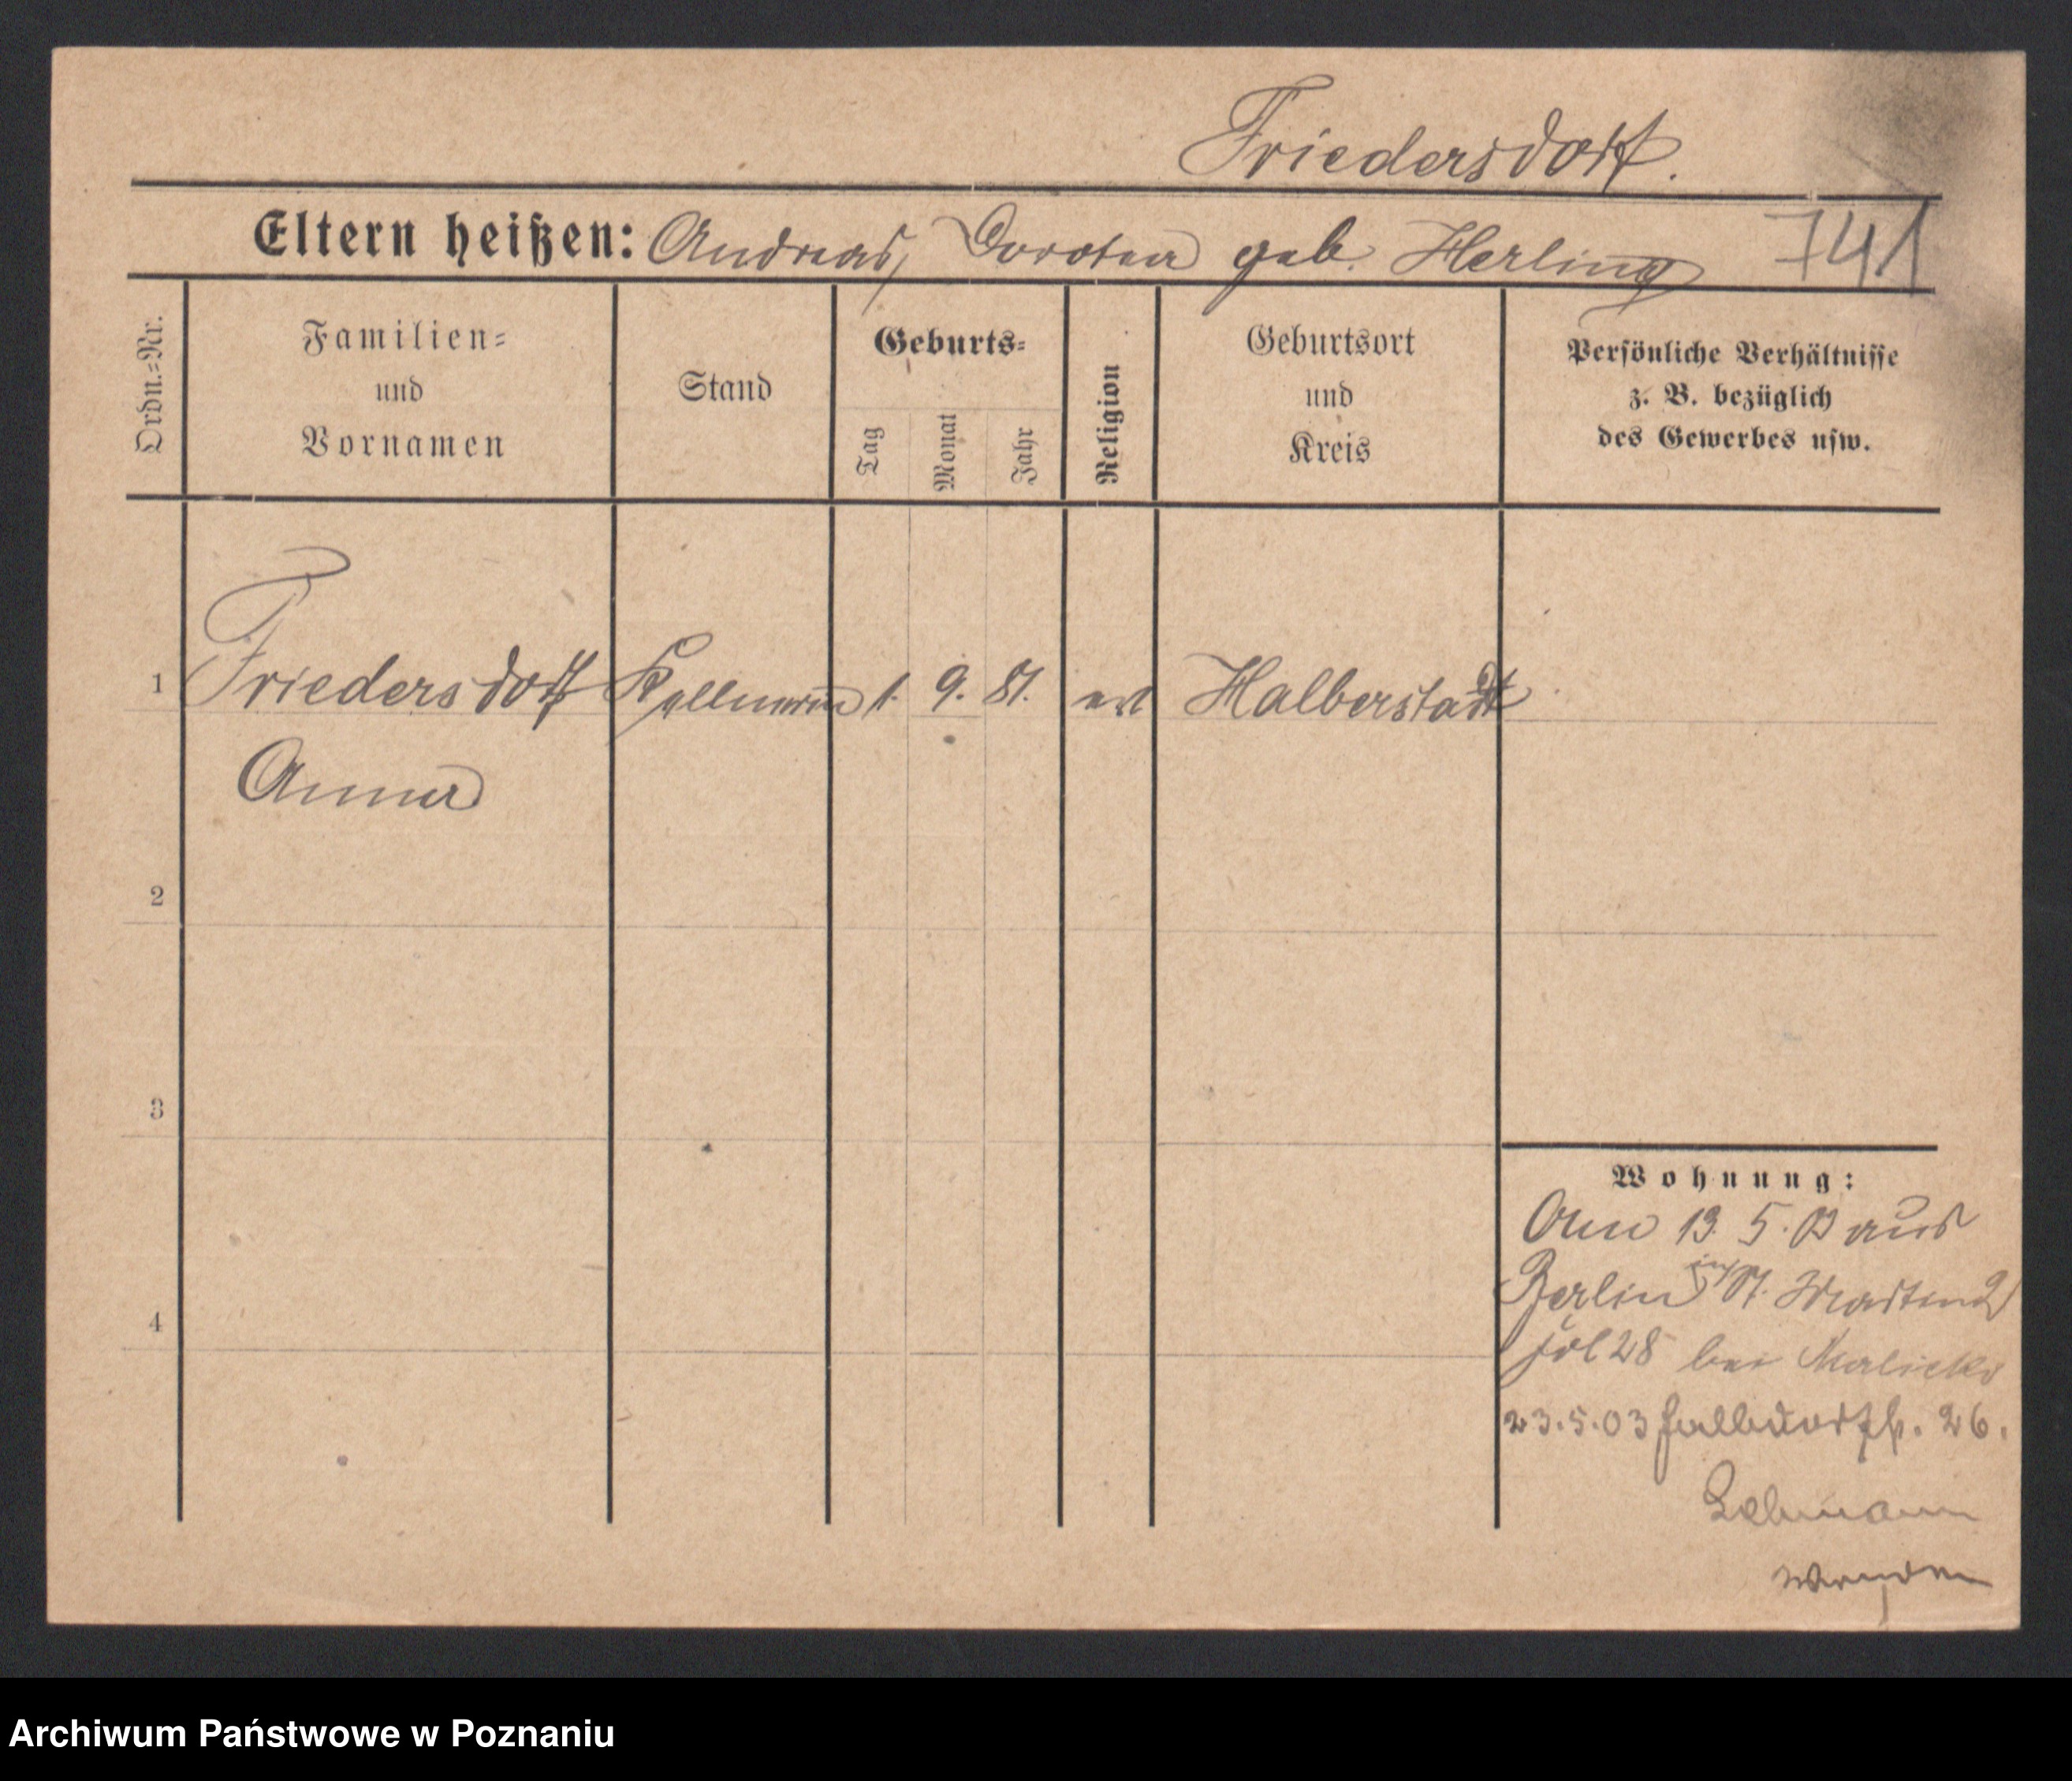 Friedersdorff.
Eltern heißen: Andreas, Dorotea geb. Herling 741
Ordn.-Nr.
Familien-
und
Vornamen
Stand
Geburts-
Tag
Monat
Jahr
Religion
Geburtsort
und
Kreis
Persönliche Verhältnisse
z. B. bezüglich
des Gewerbes usw.
1 Friedersdorff Kellnerin 1. 9. 81. ev Halberstadt
Anna
2
3
4
Wohnung:
13. 5. 03 aus
Berlin in St. Martin
28 bei
23.5.03 Halbdorfstr. 26.
Lehmann
wenden
Archiwum Państwowe w Poznaniu